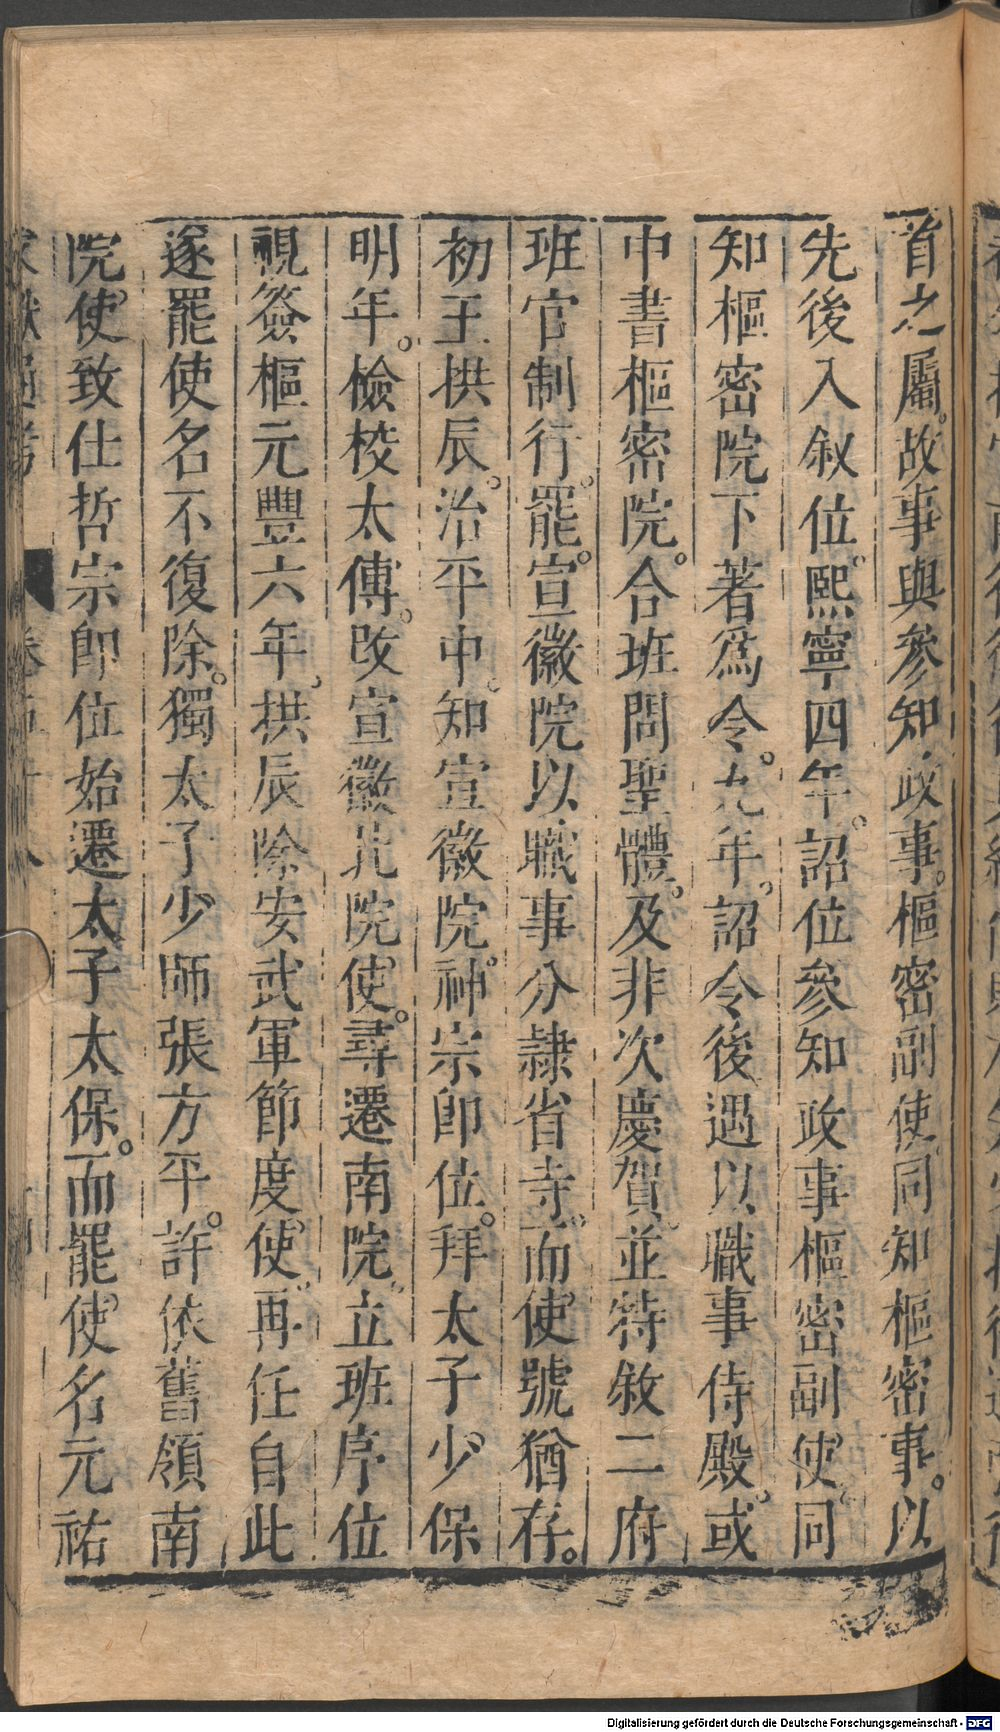 首之屬。故事與參知政事。樞密副使。同知樞密事。以
先後入敘位。熙寧四年。詔位參知政事樞密副使。同
知樞密院下著爲令。九年。詔令後遇以職事侍殿。或
中書樞密院。合班問聖體。及非次慶賀。並特敘二府
班官制行。罷。宣徽院以職事分隸省寺。而使號猶存。
初王拱辰。治平中。知宣徽院。神宗卽位。拜太子少保
明年。檢校太傅。改宣徽北院使。尋遷南院。立班序位
視簽樞元豐六年。拱辰除安武軍節度使。再任自此
遂罷使名不復除。獨太子少師張方平。許依舊領南
院使致仕哲宗卽位始遷太子太保。而罷使名元祐
Digitalisierung gefördert durch die Deutsche Forschungsgemeinschaft - DFG